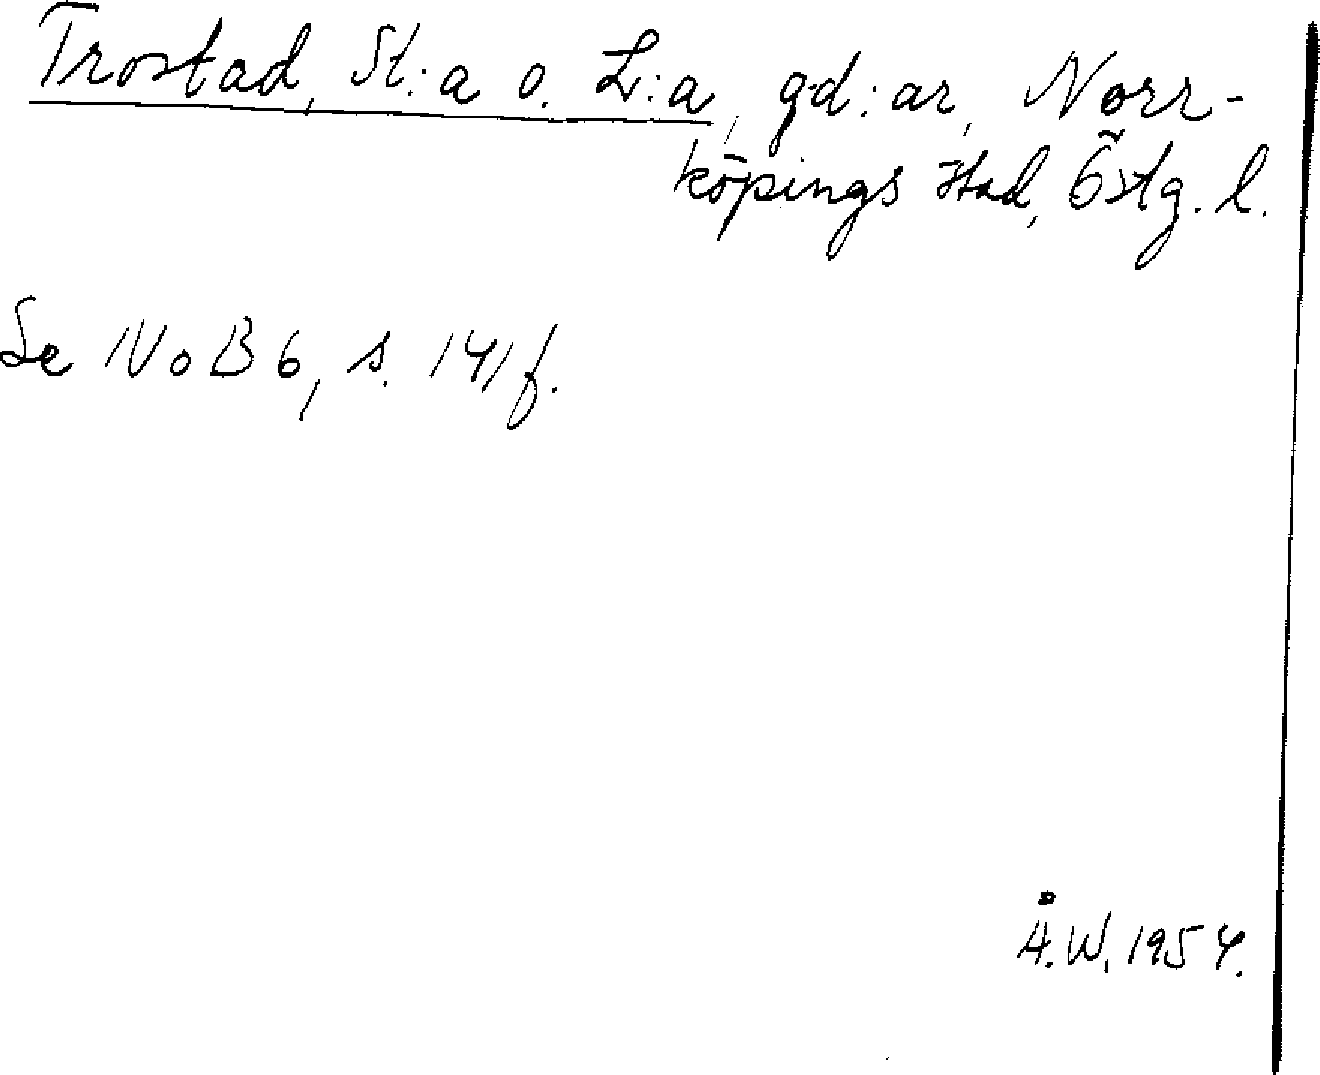 Trostad, St:a o. L:a, gd:ar, Norr-
köpings stad, Östg. l.
Se NoB 6, s. 141 f.
Å.W. 1954.